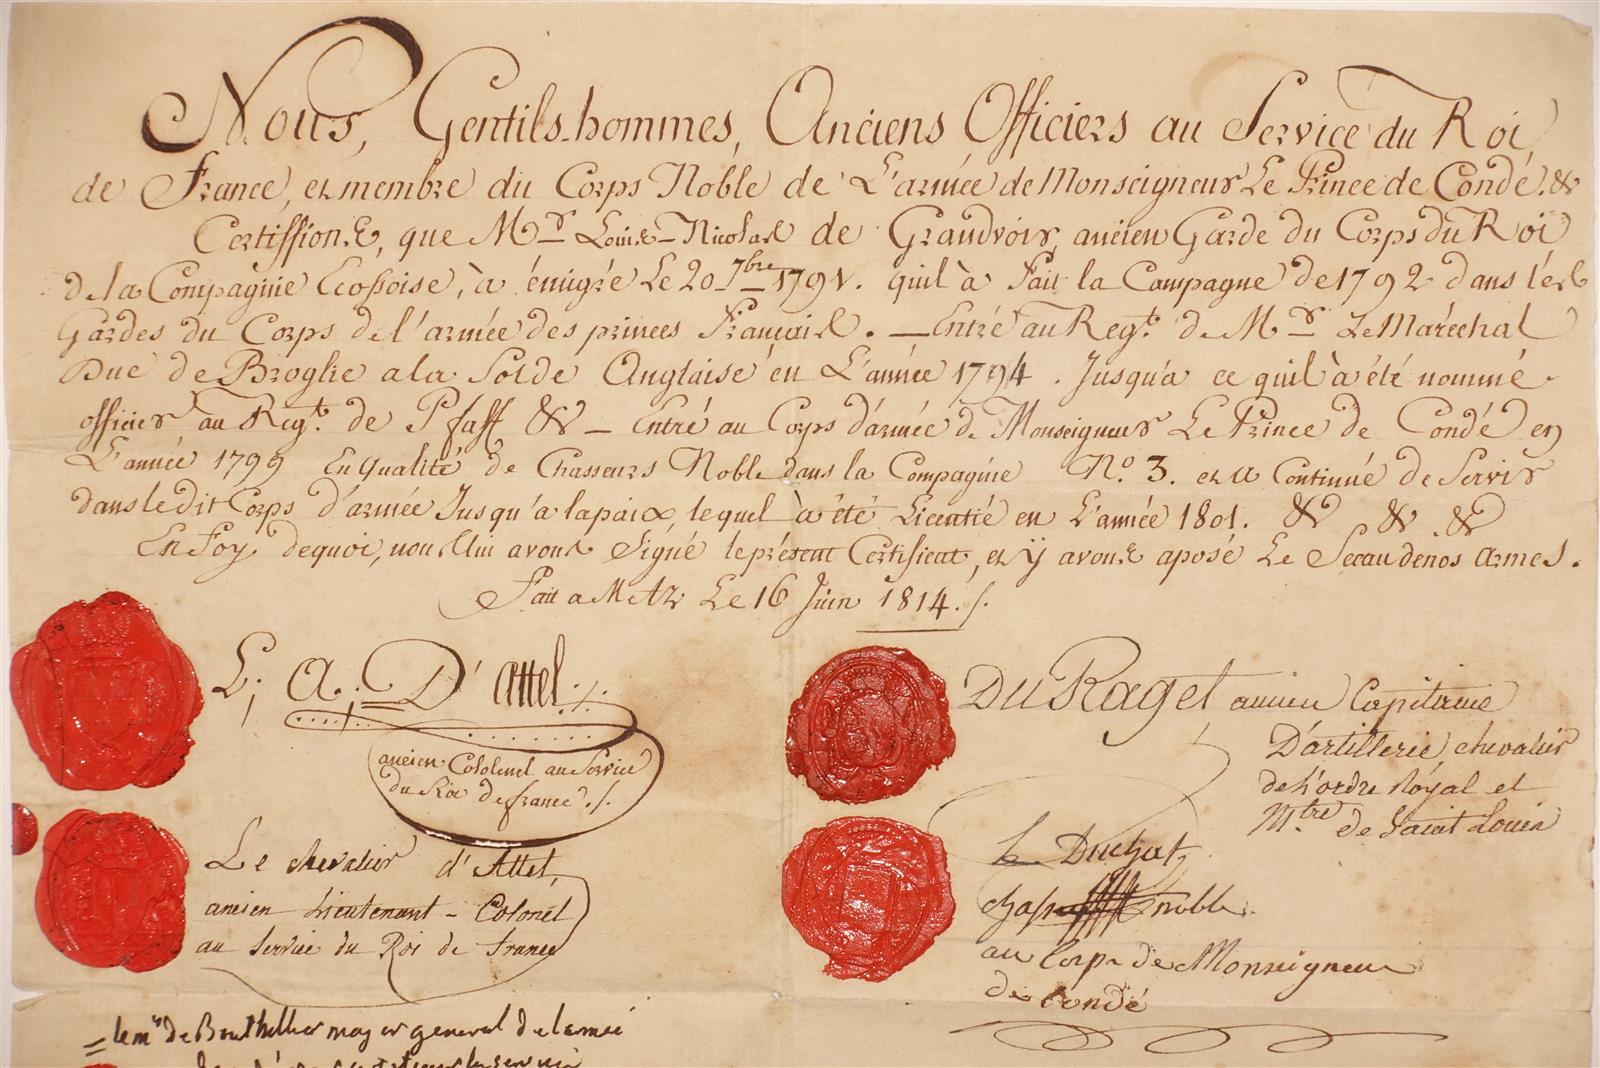 Nous, Gentils-hommes, Anciens Officiers au Service du Roi
de France, et membre du Corps Noble de L'armée de Monseigneur Le Prince de Condé. &
Certiffions, que Mr Louis-Nicolas de Grandvoir, ancien Garde du Corps du Roi
de la Compagnie Ecossoise, à émigré Le 20 7bre 1791. quil à Fait la Campagne de 1792 dans les
Gardes du Corps de l'armée des princes Français. — Entré au Regt. de Mr Le Maréchal
Duc de Broglie a la Solde Anglaise én L'année 1794. Jusqu'a ce quil à été nommé
officier au Regt. de Pfaff & — Entré au Corps d'armée de Monseigneur Le Prince de Condé en
L'année 1799 En qualité de Chasseurs Noble dans la Compagnie No. 3. et a Continué de Servir
dans le dit Corps d'armée Jusqu'á la paix, lequel à été Licentié en L'année 1801. & & &
En Foy dequoi, nous avons Signé le présent Certificat, et ÿ avons aposé Le Sceau de nos Armes.
Fait a Metz Le 16 Juin 1814./.
L; A; D'Attel./.
ancien Colonel au Service
du Roi de france./.
Du Raget ancien Capitaine
D'artillerie, chevalier
de L'ordre Royal et
Mtre de Saint Louis
Le chevalier d'Attel,
ancien Lieutenant-Colonel
au Service du Roi de France
le Duchat
noble
au Corps de Monseigneur
de Condé
= le ms de Bouthillier major general de larmée